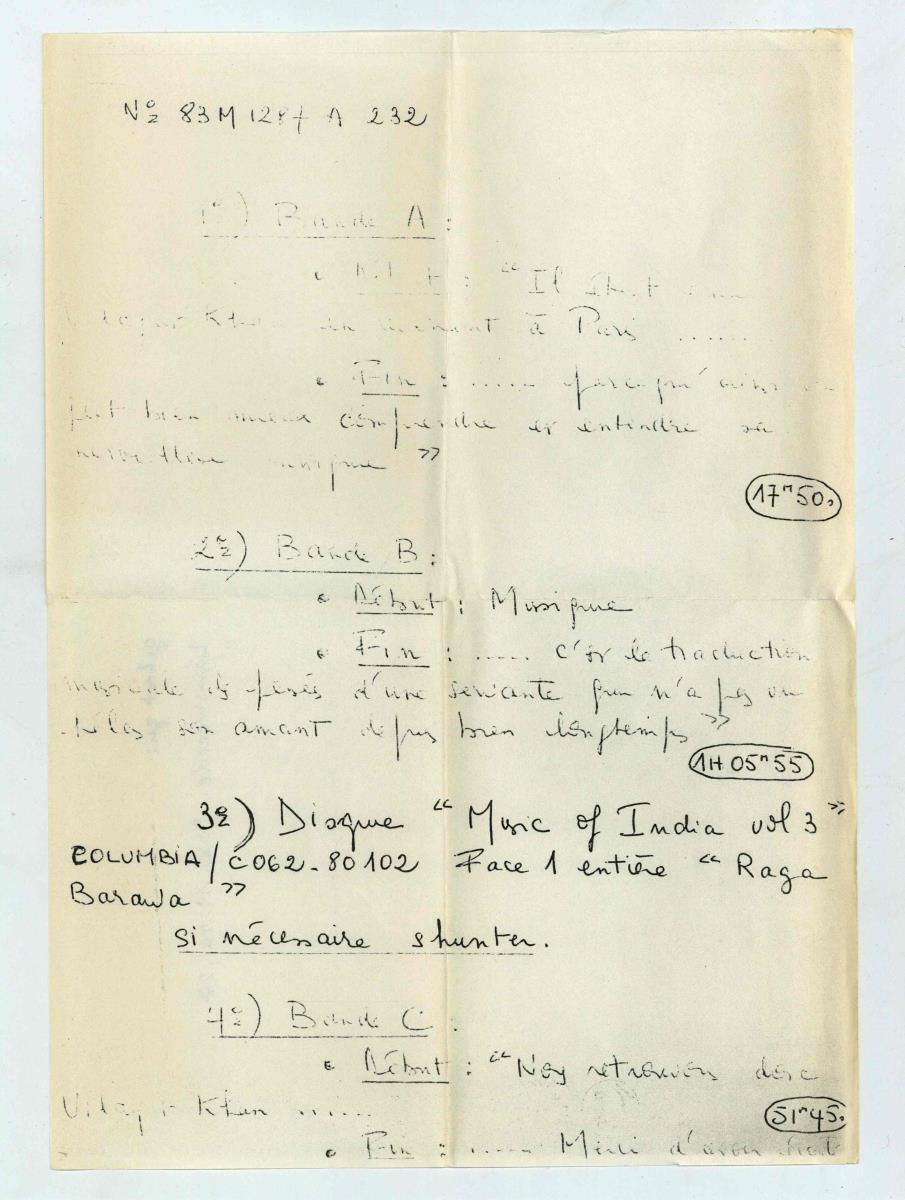 No 83M1287 A 232
1o) Bande A :
• Début : " Il était
Vilayat Khan en venant à Paris .......
• Fin : ...... parce qu'ainsi on
peut bien mieux comprendre et entendre sa
merveilleuse musique "
17m50s
2o) Bande B :
• Début : Musique
• Fin : ..... c'est la traduction
musicale des pensées d'une servante qui n'a pas vu
hélas son amant depuis bien longtemps "
1H 05m55
3o) Disque " Music of India vol 3 "
COLUMBIA / C062-80102 Face 1 entière " Raga
Barawa "
si nécessaire shunter.
4o) Bande C :
• Début : " Nous retrouvons donc
Vilayat Khan ......
51m45s
• Fin : ..... Merci d'avoir